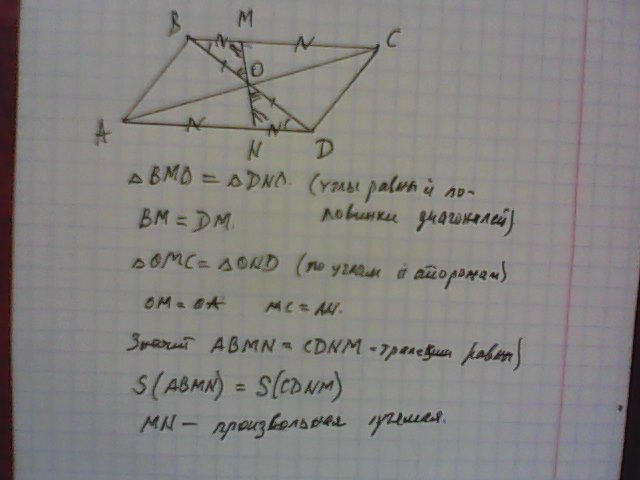 B M C
N N
O
A N N D
N
△BMO = △DNO. (углы равны и по-
BM = DM. ловинки диагоналей)
△OMC = △OND (по углам и сторонам)
OM = OA MC = AN.
Значит ABMN = CDNM - трапеции равны)
S(ABMN) = S(CDNM)
MN — произвольная прямая.